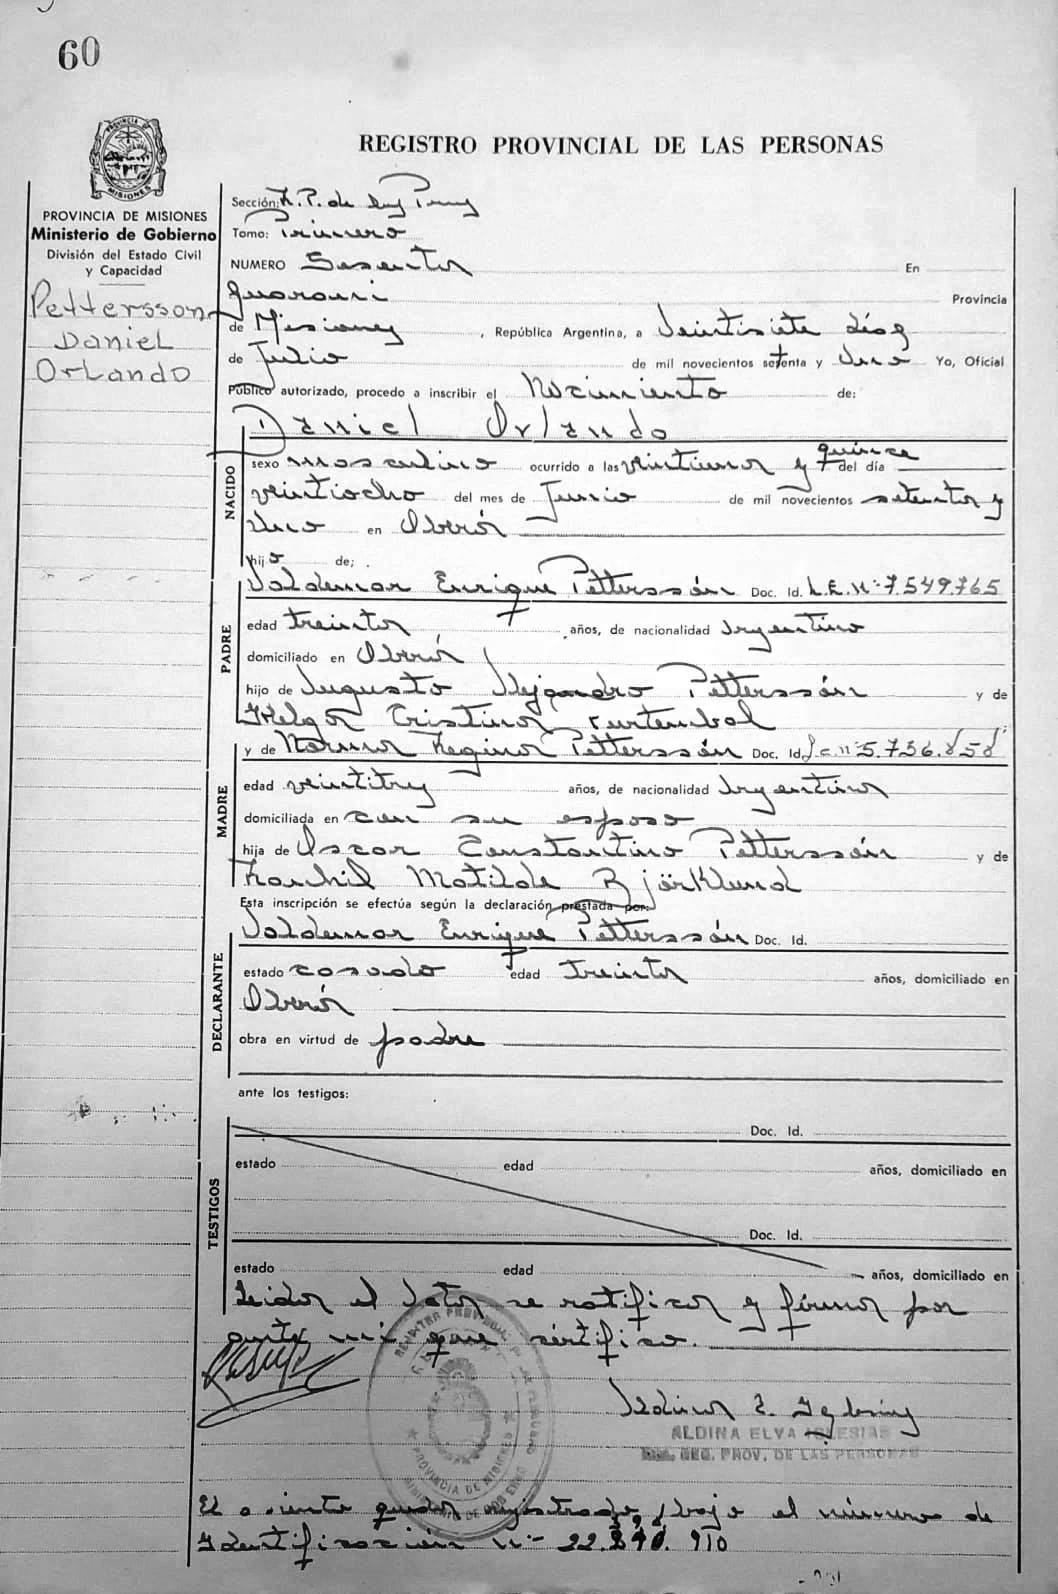 60
PROVINCIA DE MISIONES
REGISTRO PROVINCIAL DE LAS PERSONAS
PROVINCIA DE MISIONES
Ministerio de Gobierno
División del Estado Civil
y Capacidad
Pettersson
Daniel
Orlando
Sección:
Tomo: Primero
NUMERO Sesenta En
Guaraní Provincia
de Misiones, República Argentina, a Veintisiete días
de Julio de mil novecientos setenta y Uno Yo, Oficial
Público autorizado, procedo a inscribir el Nacimiento de:
Daniel Orlando
NACIDO
sexo masculino ocurrido a las veintiuna y quince del día
veintiocho del mes de Junio de mil novecientos setenta y
Uno en Oberá
hijo de;
PADRE
Valdemar Enrique Petterssón Doc. Id. L.E.Nº 7.549.765
edad treinta años, de nacionalidad Argentino
domiciliado en Oberá
hijo de Augusto Alejandro Petterssón y de
Helga Cristina
MADRE
y de Norma Regina Petterssón Doc. Id. L.C.nº 5.736.858
edad veintitres años, de nacionalidad Argentina
domiciliada en con su esposo
hija de Oscar Constantino Petterssón y de
Matilde Björklund
Esta inscripción se efectúa según la declaración prestada por:
DECLARANTE
Valdemar Enrique Petterssón Doc. Id.
estado casado edad treinta años, domiciliado en
Oberá
obra en virtud de padre
ante los testigos:
TESTIGOS
Doc. Id.
estado edad años, domiciliado en
Doc. Id.
estado edad años, domiciliado en
Leida el Acta se ratifica y firma por
ante mi que certifico.
PROVINCIA DE MISIONES
Aldina E. Iglesias
ALDINA ELVA IGLESIAS
REG. PROV. DE LAS PERSONAS
El queda registrado bajo el número de
Identificación nº